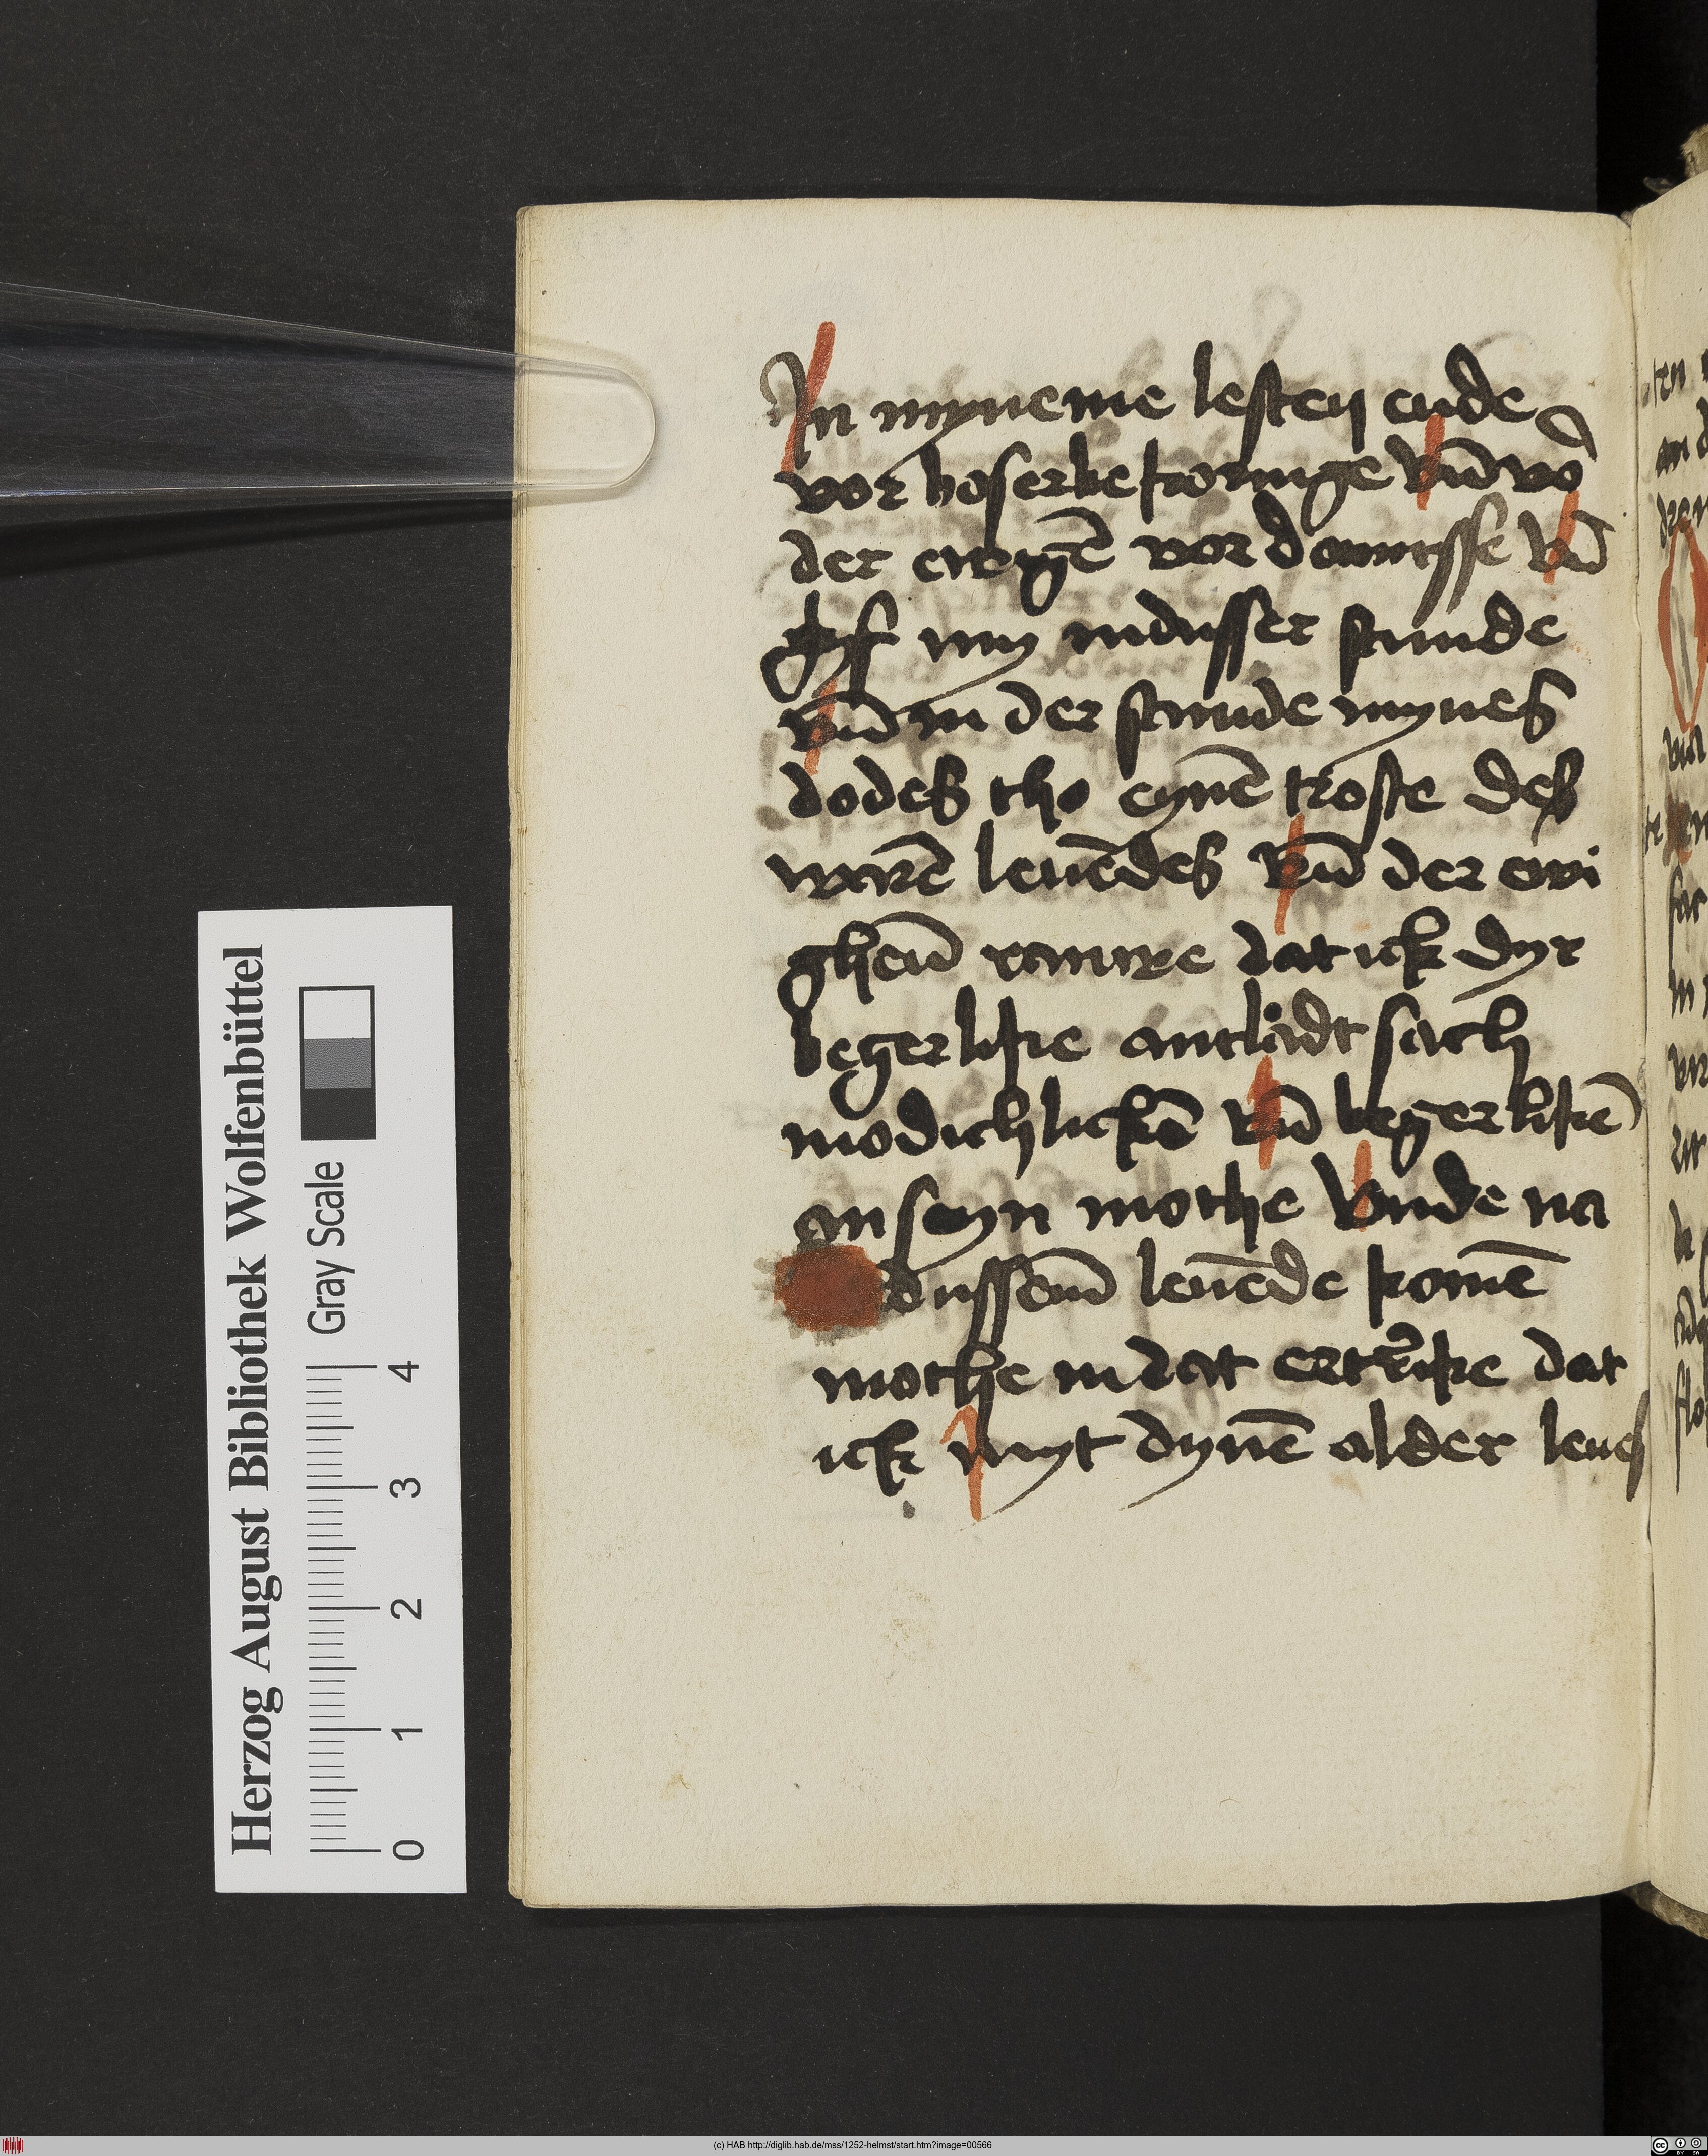 In myneme lesten ende
vor boser bekoringe vn̄ vō
der ewygē vordomnisse vn̄
gyf my in dusser stunde
vn̄ in der stunde mynes
dodes tho eynē troste des
warē leuēdes vn̄ der ewi
ghen̄ rauwe dat ick dyn
begerlike antladt sach
modichlickē vn̄ begerlikē
an seyn mothe vnde na
dussem̄ leuēde komē
mothe in dat ertrike dat
ick myt dynē alder leues
Herzog August Bibliothek Wolfenbüttel
Gray Scale
0 1 2 3 4
(c) HAB http://diglib.hab.de/mss/1252-helmst/start.htm?image=00566